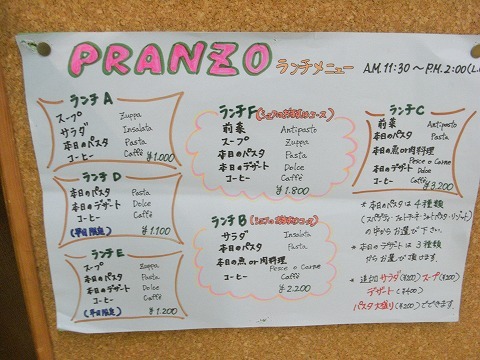 PRANZO ランチメニュー A.M. 11:30 ～ P.M. 2:00 (L.
ランチ A
スープ Zuppa
サラダ Insalata
本日のパスタ Pasta
コーヒー Caffè
¥1.000
ランチ D
本日のパスタ Pasta
本日のデザート Dolce
コーヒー Caffè
(平日限定) ¥1.100
ランチ E
スープ Zuppa
本日のパスタ Pasta
本日のデザート Dolce
コーヒー Caffè
(平日限定) ¥1.200
ランチ F (シェフの コース)
前菜 Antipasto
スープ Zuppa
本日のパスタ Pasta
本日のデザート Dolce
コーヒー Caffè
¥1.800
ランチ B (シェフの コース)
サラダ Insalata
本日のパスタ Pasta
本日の魚 or 肉料理
Pesce o Carne
コーヒー Caffè
¥2.200
ランチ C
前菜 Antipasto
本日のパスタ Pasta
本日の魚 or 肉料理
Pesce o Carne
本日のデザート Dolce
コーヒー Caffè
¥3.200
* 本日のパスタは 4種類
の中からお選び下さい。
* 本日のデザートは 3種類
からお選び頂けます。
* 追加 サラダ(¥200) スープ(¥200)
デザート(¥400)
パスタ大盛り(¥200)できます。